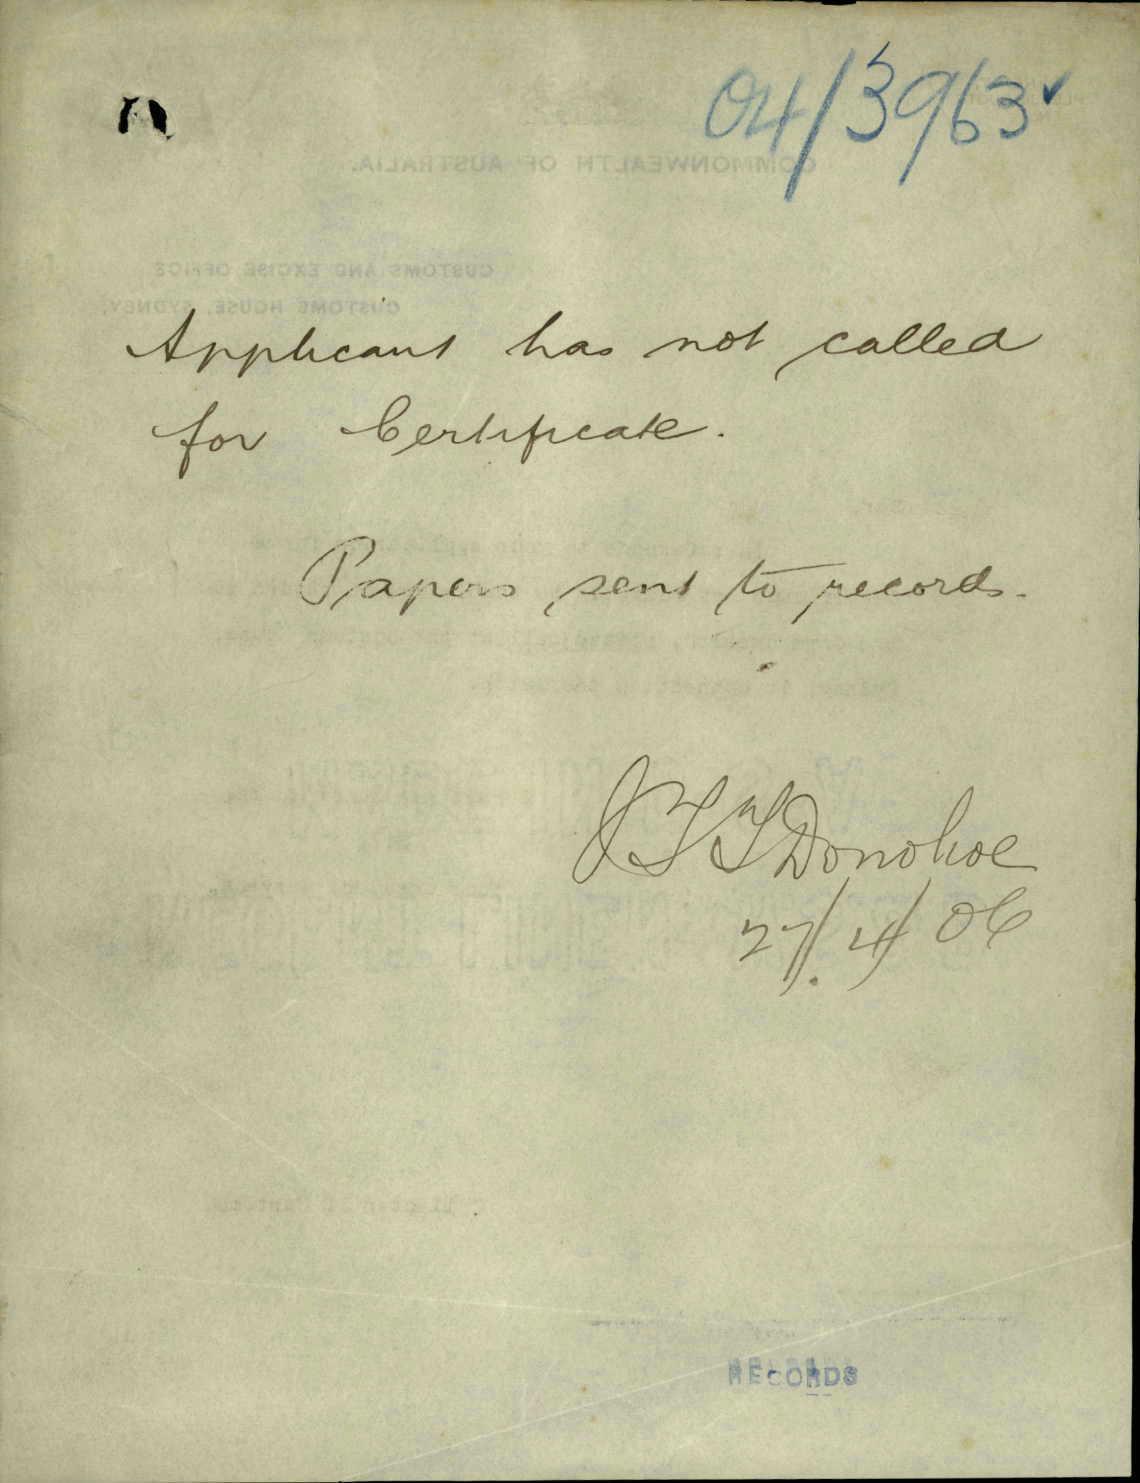 04/3963
COMMONWEALTH OF AUSTRALIA.
CUSTOMS AND EXCISE OFFICE
CUSTOMS HOUSE, SYDNEY,
Applicant has not called
for Certificate.
Papers sent to records.
Donohoe
27/4/06
RECORDS